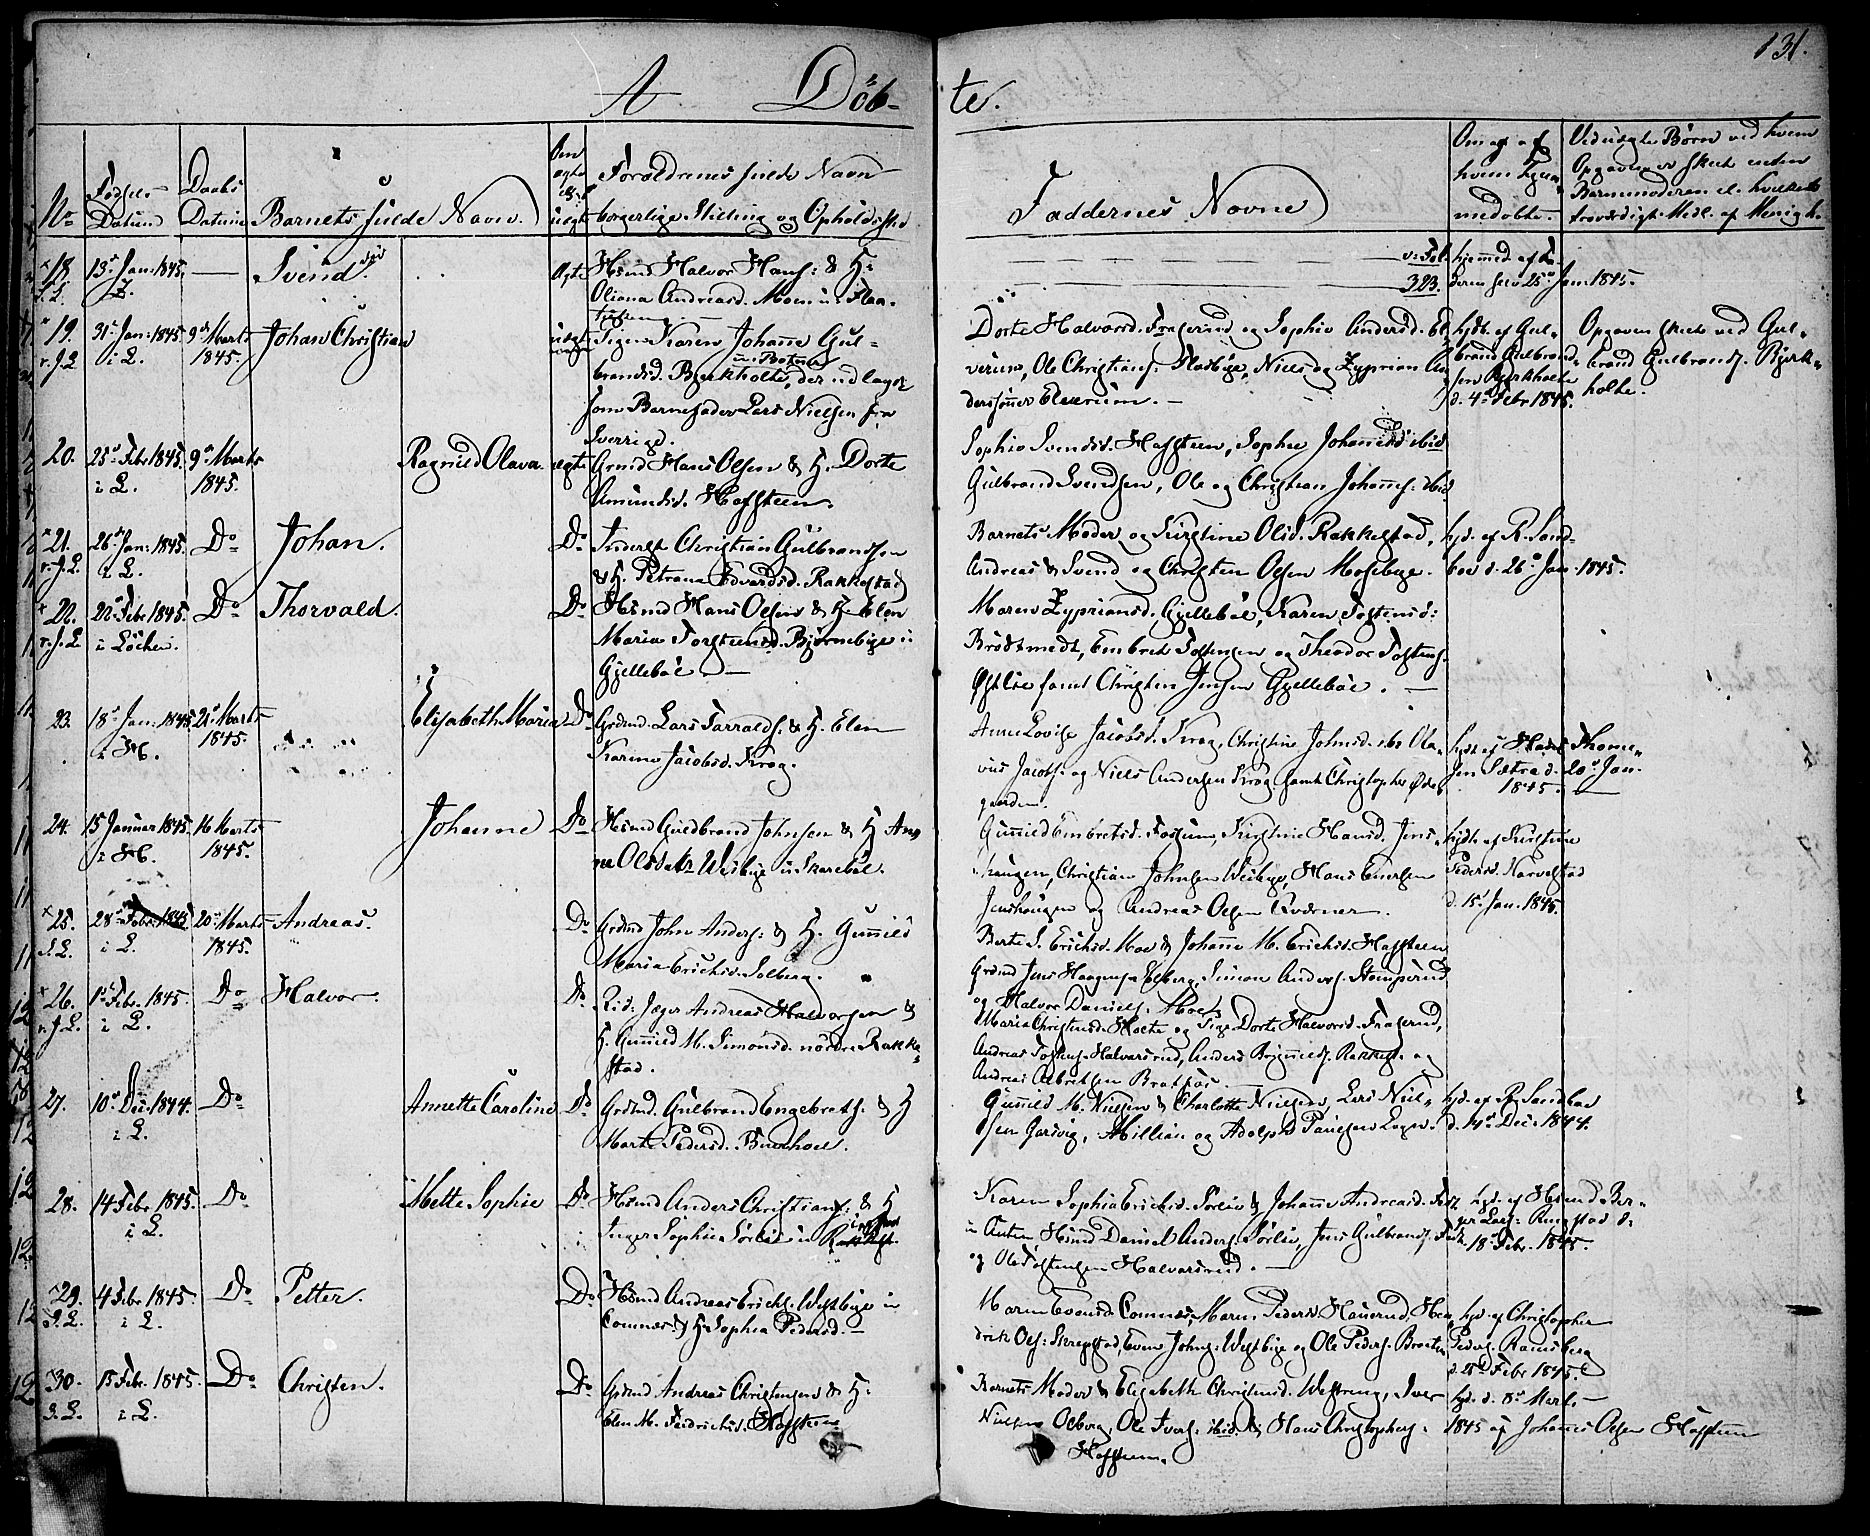 131.
A. Döb-
te.
No
Fødsels-
Datum
Daabs
Datum
Barnets fulde Navn
Om
ægte
el.
uægte
Forældrenes fulde Navn
borgerlige Stilling og Opholdssted
Faddernes Navne
Om og af
hvem hjem-
medøbte.
Ved uægte Børn ved hvem
Opgaven er skeet enten
Barnemoderen el. hvilket
troværdigt Medl. af Menigh.
18. 13de Jan: 1845. — Svend
ægte Hsmd Halvor Hans: & H:
Oliana Andreasd. Moen
v: Fol.
323.
hjemmed. af Fa-
deren selv 25de Jan 1845.
19. 31te Jan: 1845 i L. 9de Marts 1845. Johan Christian
uægte Pigen Karen Johanne Gul-
brandsd. Bjerkholte, der udlagde
som Barnefader Lars Nielsen fra
Sverrige.
Dorte Halvorsd. Fragerud og Sophie Andersd. El-
verum, Ole Christians: Haebÿe, Niels og Zyprian An-
derssønner Elverum. —
hjdt. af Gul-
brand Gulbrand-
sen Bjerkholte
d. 4de Febr 1845.
Opgaven skeet ved Gul-
brand Gulbrands. Bjerk-
holte.
20. 25de Febr 1845. i L. 9de Marts 1845. Ragnild Olava. ægte
Grmd Hans Olsen & H. Dorte
Amundsd. Hofsteen.
Sophie Svendsd. Hafsteen, Sophie Johannesd ibid
Gulbrand Svendsen, Ole og Christian Johans: ibid
21. 26de Jan: 1845. i L. Do Johan. Do
Inderst Christian Gulbrandsen
& H. Petrana Edvardsd. Rakkestad
Barnets Moder og Kirstine Olsd. Rakkestad,
Andreas & Svend og Christen Olsen Mosebye.
hjd. af R. Sand-
boe d. 26de Jan. 1845.
22. 22de Febr 1845. i Löchen. Do Thorvald. Do
Hsmd Hans Olsen & H. Elen
Maria Torstensd. Bjørnebye i
Gjellebøe. —
Maren Zypriansd. Gjellebøe, Karen Tostensd:
Brödsmedt, Embret Tostensen og Theodor Tostens.
Østlie samt Christen Jensen Gjellebøe. —
23. 18de Jan: 1845 i H. 21de Marts 1845. Elisabeth Maria Do
Grdmd. Lars Tarralds. & H. Elen
Karine Jacobsd. Krog.
Anne Lovise Jacobsd. Krog, Christine Johnsd. ibid Ola-
vus Jacobs. og Niels Andersen Krog samt Christopher Øde-
gaarden.
hjdt. af Hans Thome-
sen Sætra d. 20de Jan.
1845. —
24. 15 Januar 1845. i H. 16 Marts 1845. Johanne Do
Hsmd Guldbrand Johnsen & H An-
ne Olsdatr Wesbye i Skarebøl.
Gunild Embretsd. Fossum, Kirstine Hansd. Jens-
haugen, Christian Johnsen Wesbye, Hans Enersen
Jenshaugen og Andreas Olsen Kværner.
hjdt. af Kirstine
Pedersd. Narvestad
d. 15de Jan. 1845.
25. 28de Febr 1845 i L. 20de Marts 1845. Andreas. Do
Grdmd John Anders: & H. Gunild
Maria Erichsd. Solberg.
Berte S. Erichsd. Moe & Johanne M. Erichsd. Hafsteen,
Grdmd Jens Haagensen Elberg, Simon Anders. Stomperud
og Halvor Daniels. Moe.
26. 1ste Febr. 1845. i L. Do Halvor. Do
Rid. Jæger Andreas Halvorsen &
H. Gunild M. Simonsd. nordre Rakke-
stad.
Maria Christensd. Holte og Pige Dorte Halvorsd. Fragerud,
Andreas Tostens. Halvarsrud, Anders Brynnilds. Rakkest. og
Andreas Albretsen Bratfos.
27. 10de Dec: 1844. i L. Do Annette Caroline Do
Grdmd. Gulbrand Engebrets. & H
Marte Pedersd. Buerhoel.
Gunild M. Nielsen & Charlotte Nielsen, Lars Niel-
sen Garsvig, Millian og Adolph Paulsen Lager.
hjd. af R. Sandboe
d. 14de Dec: 1844.
28. 14 Febr 1845. i L. Do Mette Sophie Do
Hsmd Anders Christians. & H
Inger Sophie Sørlie
Karen Sophia Erichsd. Sørlie & Johanne Andreasd. Fest.
Hsmd Daniel Anders. Sørlie, Jens Gulbrands. Fest.
og Ole Tostensen Halvarsrud. —
hjd. af Hsmd Bir-
ger Lars: Ringstad d:
18de Febr. 1845.
29. 4 Febr 1845. i L. Do Petter. Do
Hsmd Andreas Erichs. Westbye i
Comnæs & H. Sophia Pedersd. —
Maren Evensd. Comnæs, Maren Pedersd. Hauerud, Hen-
drik Ols: Skregstad, Even Johns: Westbye og Ole Peders. Braaten
hjd. af Christopher
Peders. Ramsberg
d. 25de Febr 1845.
30. 15 Febr. 1845. i L. Do Christen. Do
Grdmd Andreas Christensen & H:
Elen M. Fredrichsd. Hofsteen
Barnets Moder & Elisabeth Christensd. Westreng, Iver
Nielsen Ocberg, Ole Ivers: ibid. & Hans Christophers:
Hofsteen.
hjd. d. 8de Marts
1845 af Johannes Olsen Hofsteen